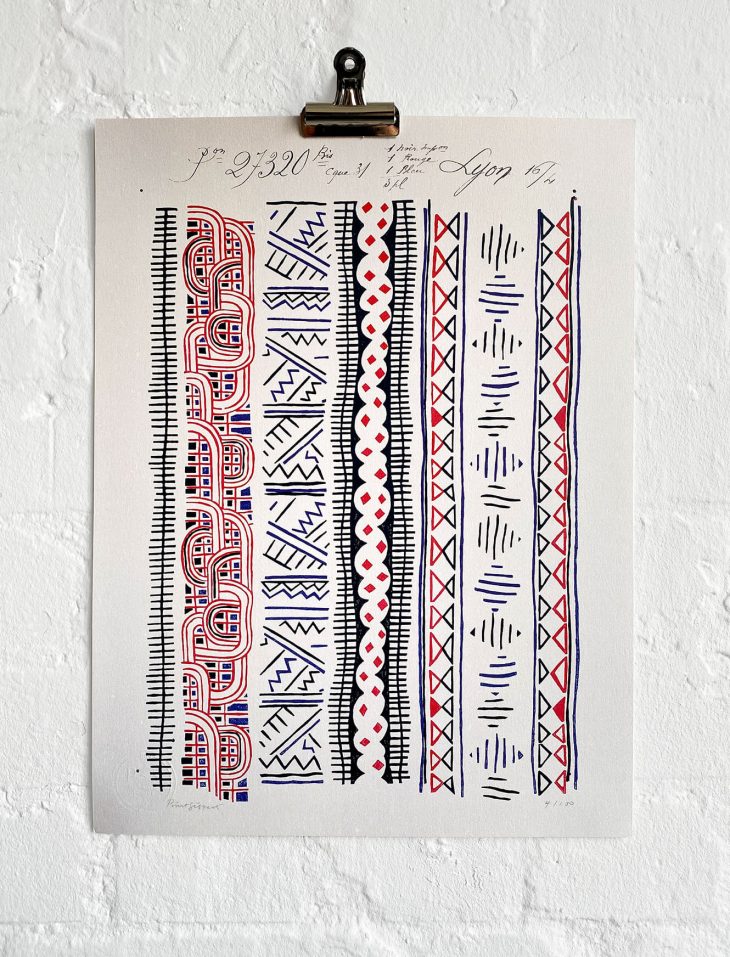 Pon 27320 Bis
Cque 31
1 noir
1 Rouge
1 Bleu
Lyon 16/4
4/100